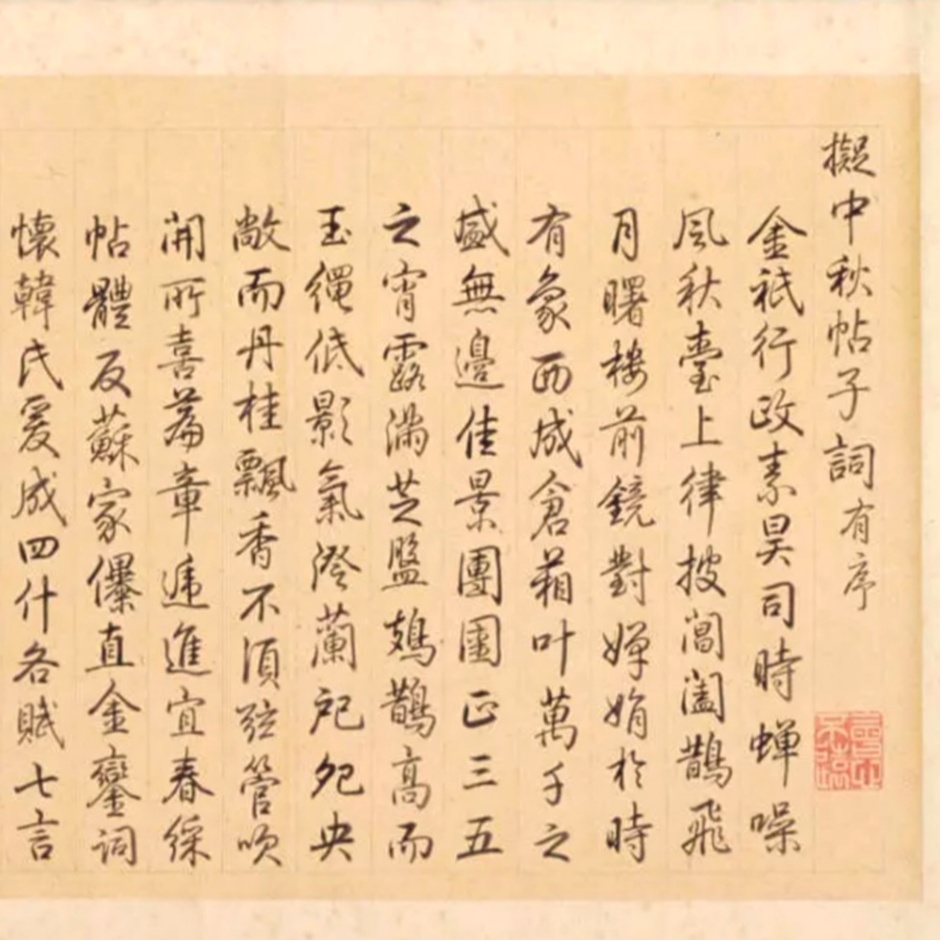 擬中秋帖子詞有序
金祇行政素昊司時蟬噪
風秋臺上律披閶闔鵲飛
月曙樓前鏡對嬋娟於時
有象西成倉葙叶萬千之
盛無邊佳景團圞正三五
之宵露滿芝盤鳷鵲高而
玉繩低影氣澄蘭戺夗央
敞而丹桂飄香不須弦管吹
開所喜篇章遞進宜春綵
帖體反蘇家儤直金鑾詞
懷韓氏爰成四什各賦七言